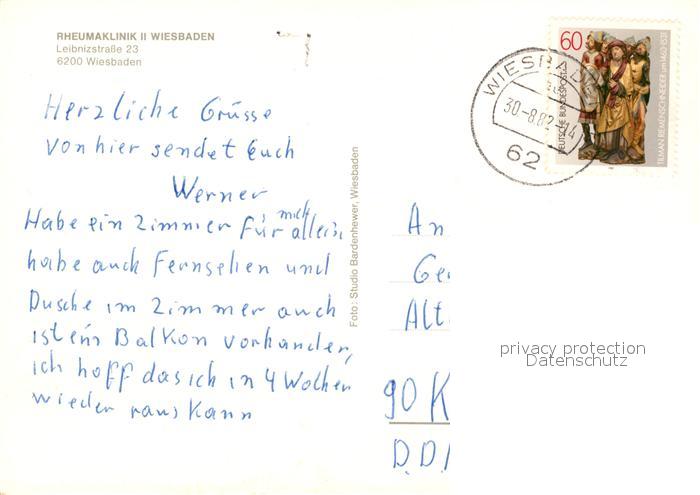 RHEUMAKLINIK II WIESBADEN
Leibnizstraße 23
6200 Wiesbaden
Herzliche Grüsse
von hier sendet Euch
Werner
Habe ein Zimmer für mich allein,
habe auch Fernsehen und
Dusche im Zimmer auch
ist ein Balkon vorhanden,
ich hoff das ich in 4 Wochen
wieder raus kann
Foto: Studio Bardenhewer, Wiesbaden
60
DEUTSCHE BUNDESPOST
TILMAN RIEMENSCHNEIDER um 1460-1531
WIESBAD
30.-8.82
62
An
Ge
Alt
90 K
D.D.
privacy protection
Datenschutz